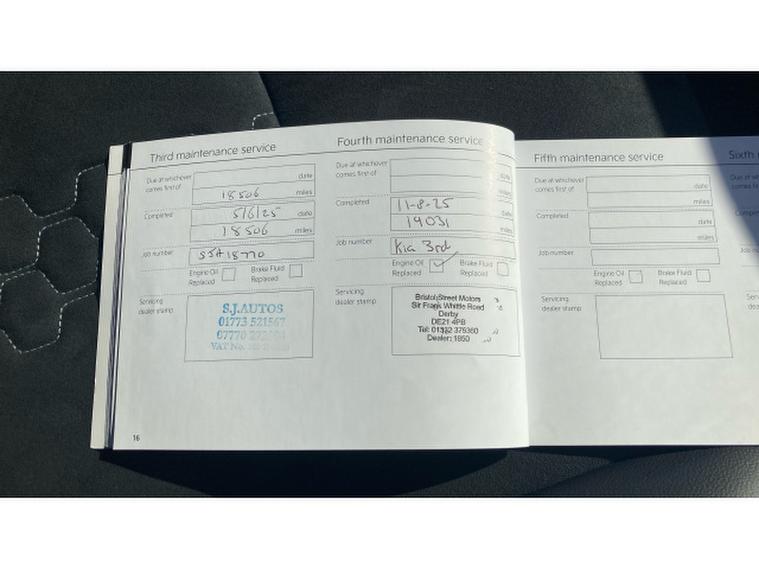 Third maintenance service
Due at whichever comes first of
date
18506 miles
Completed
5/6/25 date
18506 miles
Job number
Engine Oil Replaced
Brake Fluid Replaced
Servicing dealer stamp
S.J.AUTOS
01773 521567
07770
VAT No.
Fourth maintenance service
Due at whichever comes first of
Completed
11-8-25
19031
Job number
Kia 3rd
Engine Oil Replaced
Brake Fluid Replaced
Servicing dealer stamp
Bristol Street Motors
Sir Frank Whittle Road
Derby
DE21 4PB
Tel:
Dealer: 1850
16
Fifth maintenance service
Due at whichever comes first of
date
miles
Completed
date
miles
Job number
Engine Oil Replaced
Brake Fluid Replaced
Servicing dealer stamp
Sixth